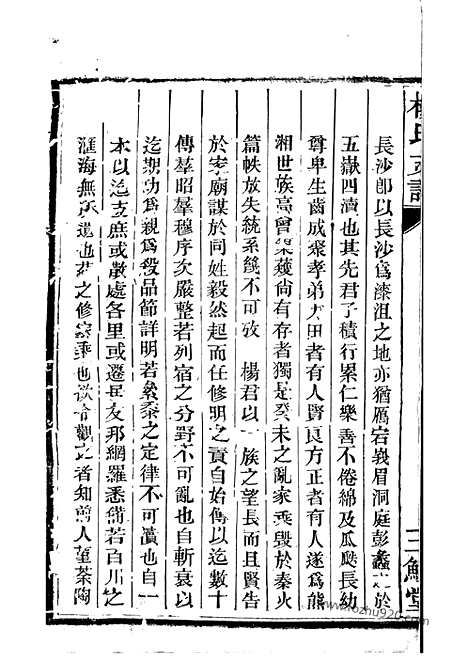 楊氏支譜
長沙郎以長沙爲漆沮之地亦猶鴈宕峩眉洞庭彭蠡之於
五嶽四瀆也其先君子積行累仁樂善不倦綿及瓜瓞長幼
尊卑生齒成聚孝弟力田者有人賢良方正者有人遂爲熊
湘世族高曾渠䕫尚有存者獨是癸未之亂家乘毀於秦火
篇帙放失統系幾不可攷 楊君以 族之望長而且賢告
於家廟謀於同姓毅然起而任修明之責自始傳以迄數十
傳羣昭羣穆序次嚴整若列宿之分野不可亂也自斬衰以
迄期功爲親爲殺品節詳明若絫黍之定律不可瀆也自一
本以迄支庶或散處各里或遷居友邦網羅悉備若百川之
滙海無遺也若之修家乘也欲令觀之者知前人望茶陶
三鱣堂
www.fozhu920.com